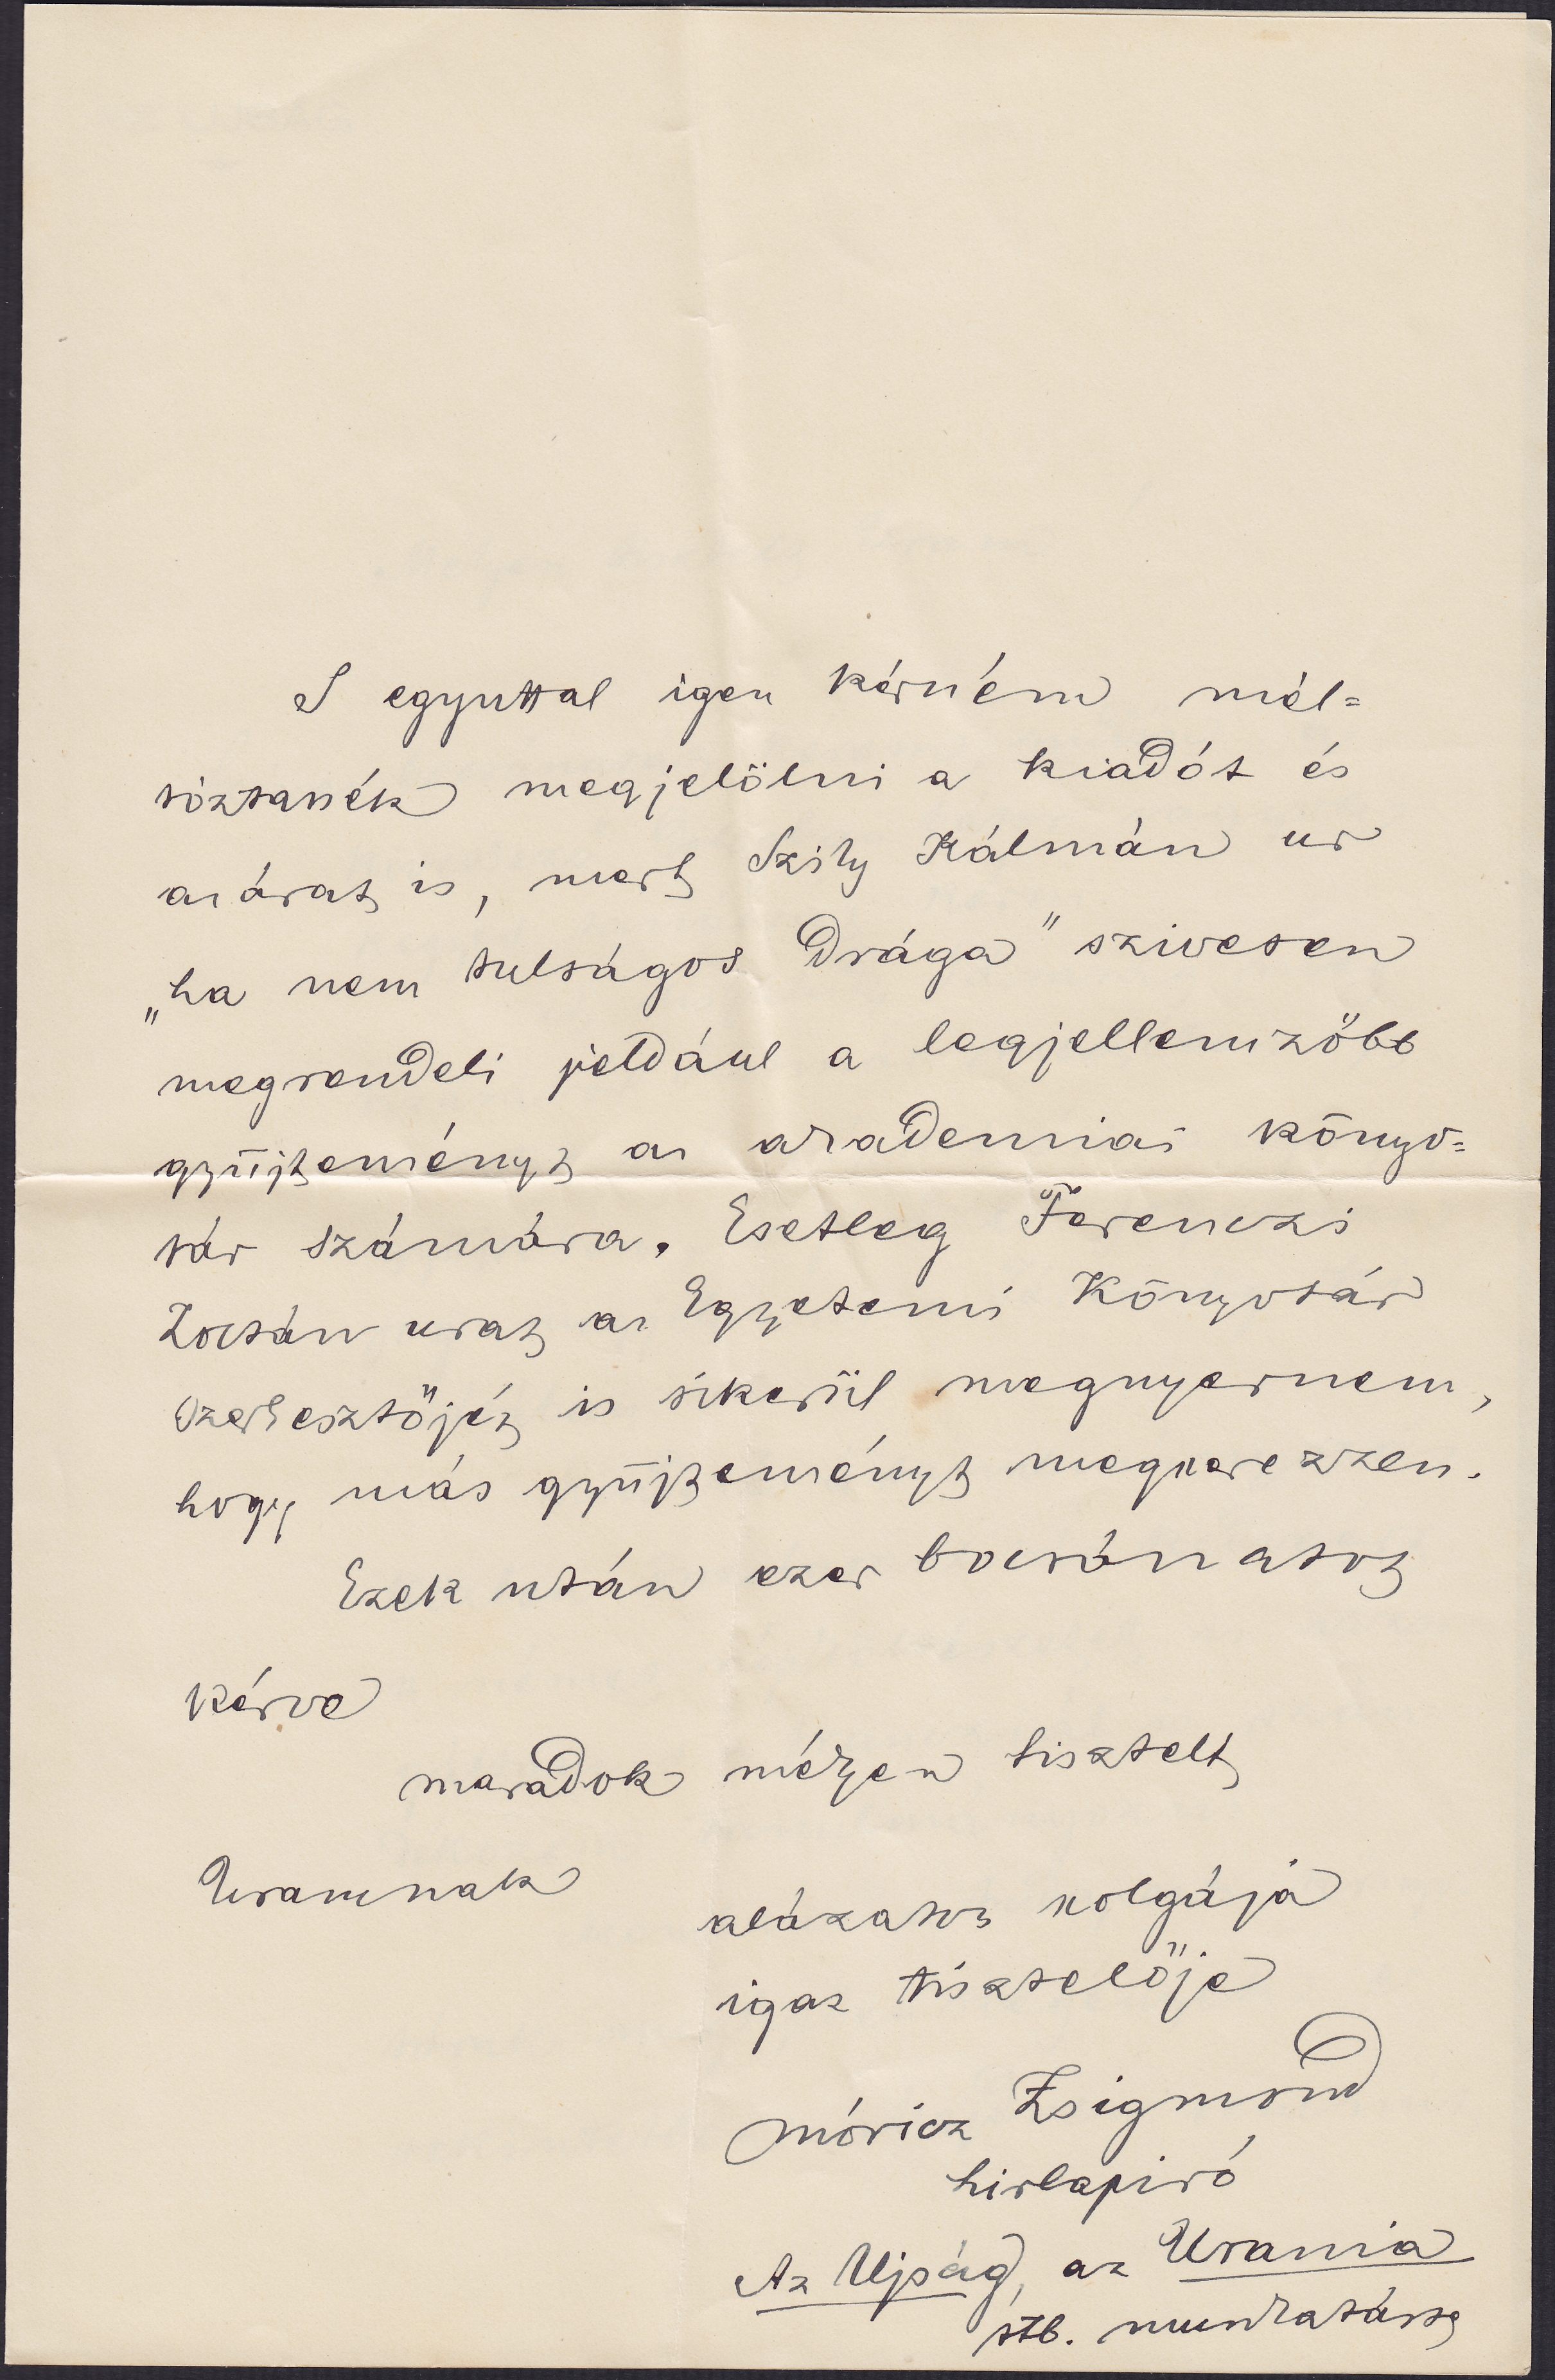 S egyuttal igen kérném mél=
tóztatnék megjelölni a kiadót és
az árat is, mert Szily Kálmán ur
„ha nem tulságos drága" szivesen
megrendeli például a legjellemzőbb
gyüjteményt az akademiai könyv=
tár számára. Esetleg Ferenczi
Zoltán urat az Egyetemi Könyvtár
szerkesztőjét is sikerül megnyernem,
hogy más gyüjteményt megszerezzen.
Ezek után ezer bocsánatot
kérve
maradok mélyen tisztelt
Uramnak
alázatos szolgája
igaz tisztelője
Móricz Zsigmond
hirlapiró
Az Ujság, az Urania
stb. munkatársa